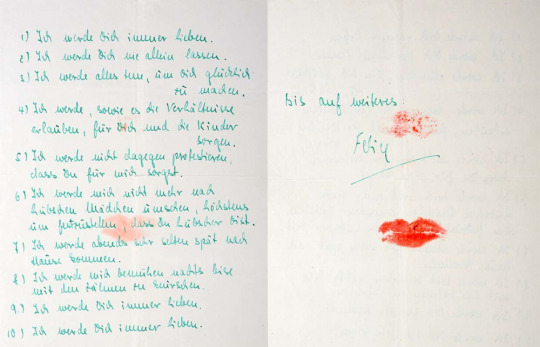 1) Ich werde Dich immer lieben.
2) Ich werde Dich nie allein lassen.
3) Ich werde alles tun, um Dich glücklich
zu machen.
4) Ich werde, sowie es die Verhältnisse
erlauben, für Dich und die Kinder
sorgen.
5) Ich werde nicht dagegen protestieren,
dass Du für mich sorgst.
6) Ich werde mich nicht mehr nach
hübschen Mädchen umsehen, höchstens
um festzustellen, dass Du hübscher bist.
7) Ich werde abends sehr selten spät nach
Hause kommen.
8) Ich werde mich bemühen nachts leise
mit den Zähnen zu knirschen.
9.) Ich werde Dich immer lieben.
10.) Ich werde Dich immer lieben.
bis auf weiteres:
Felix